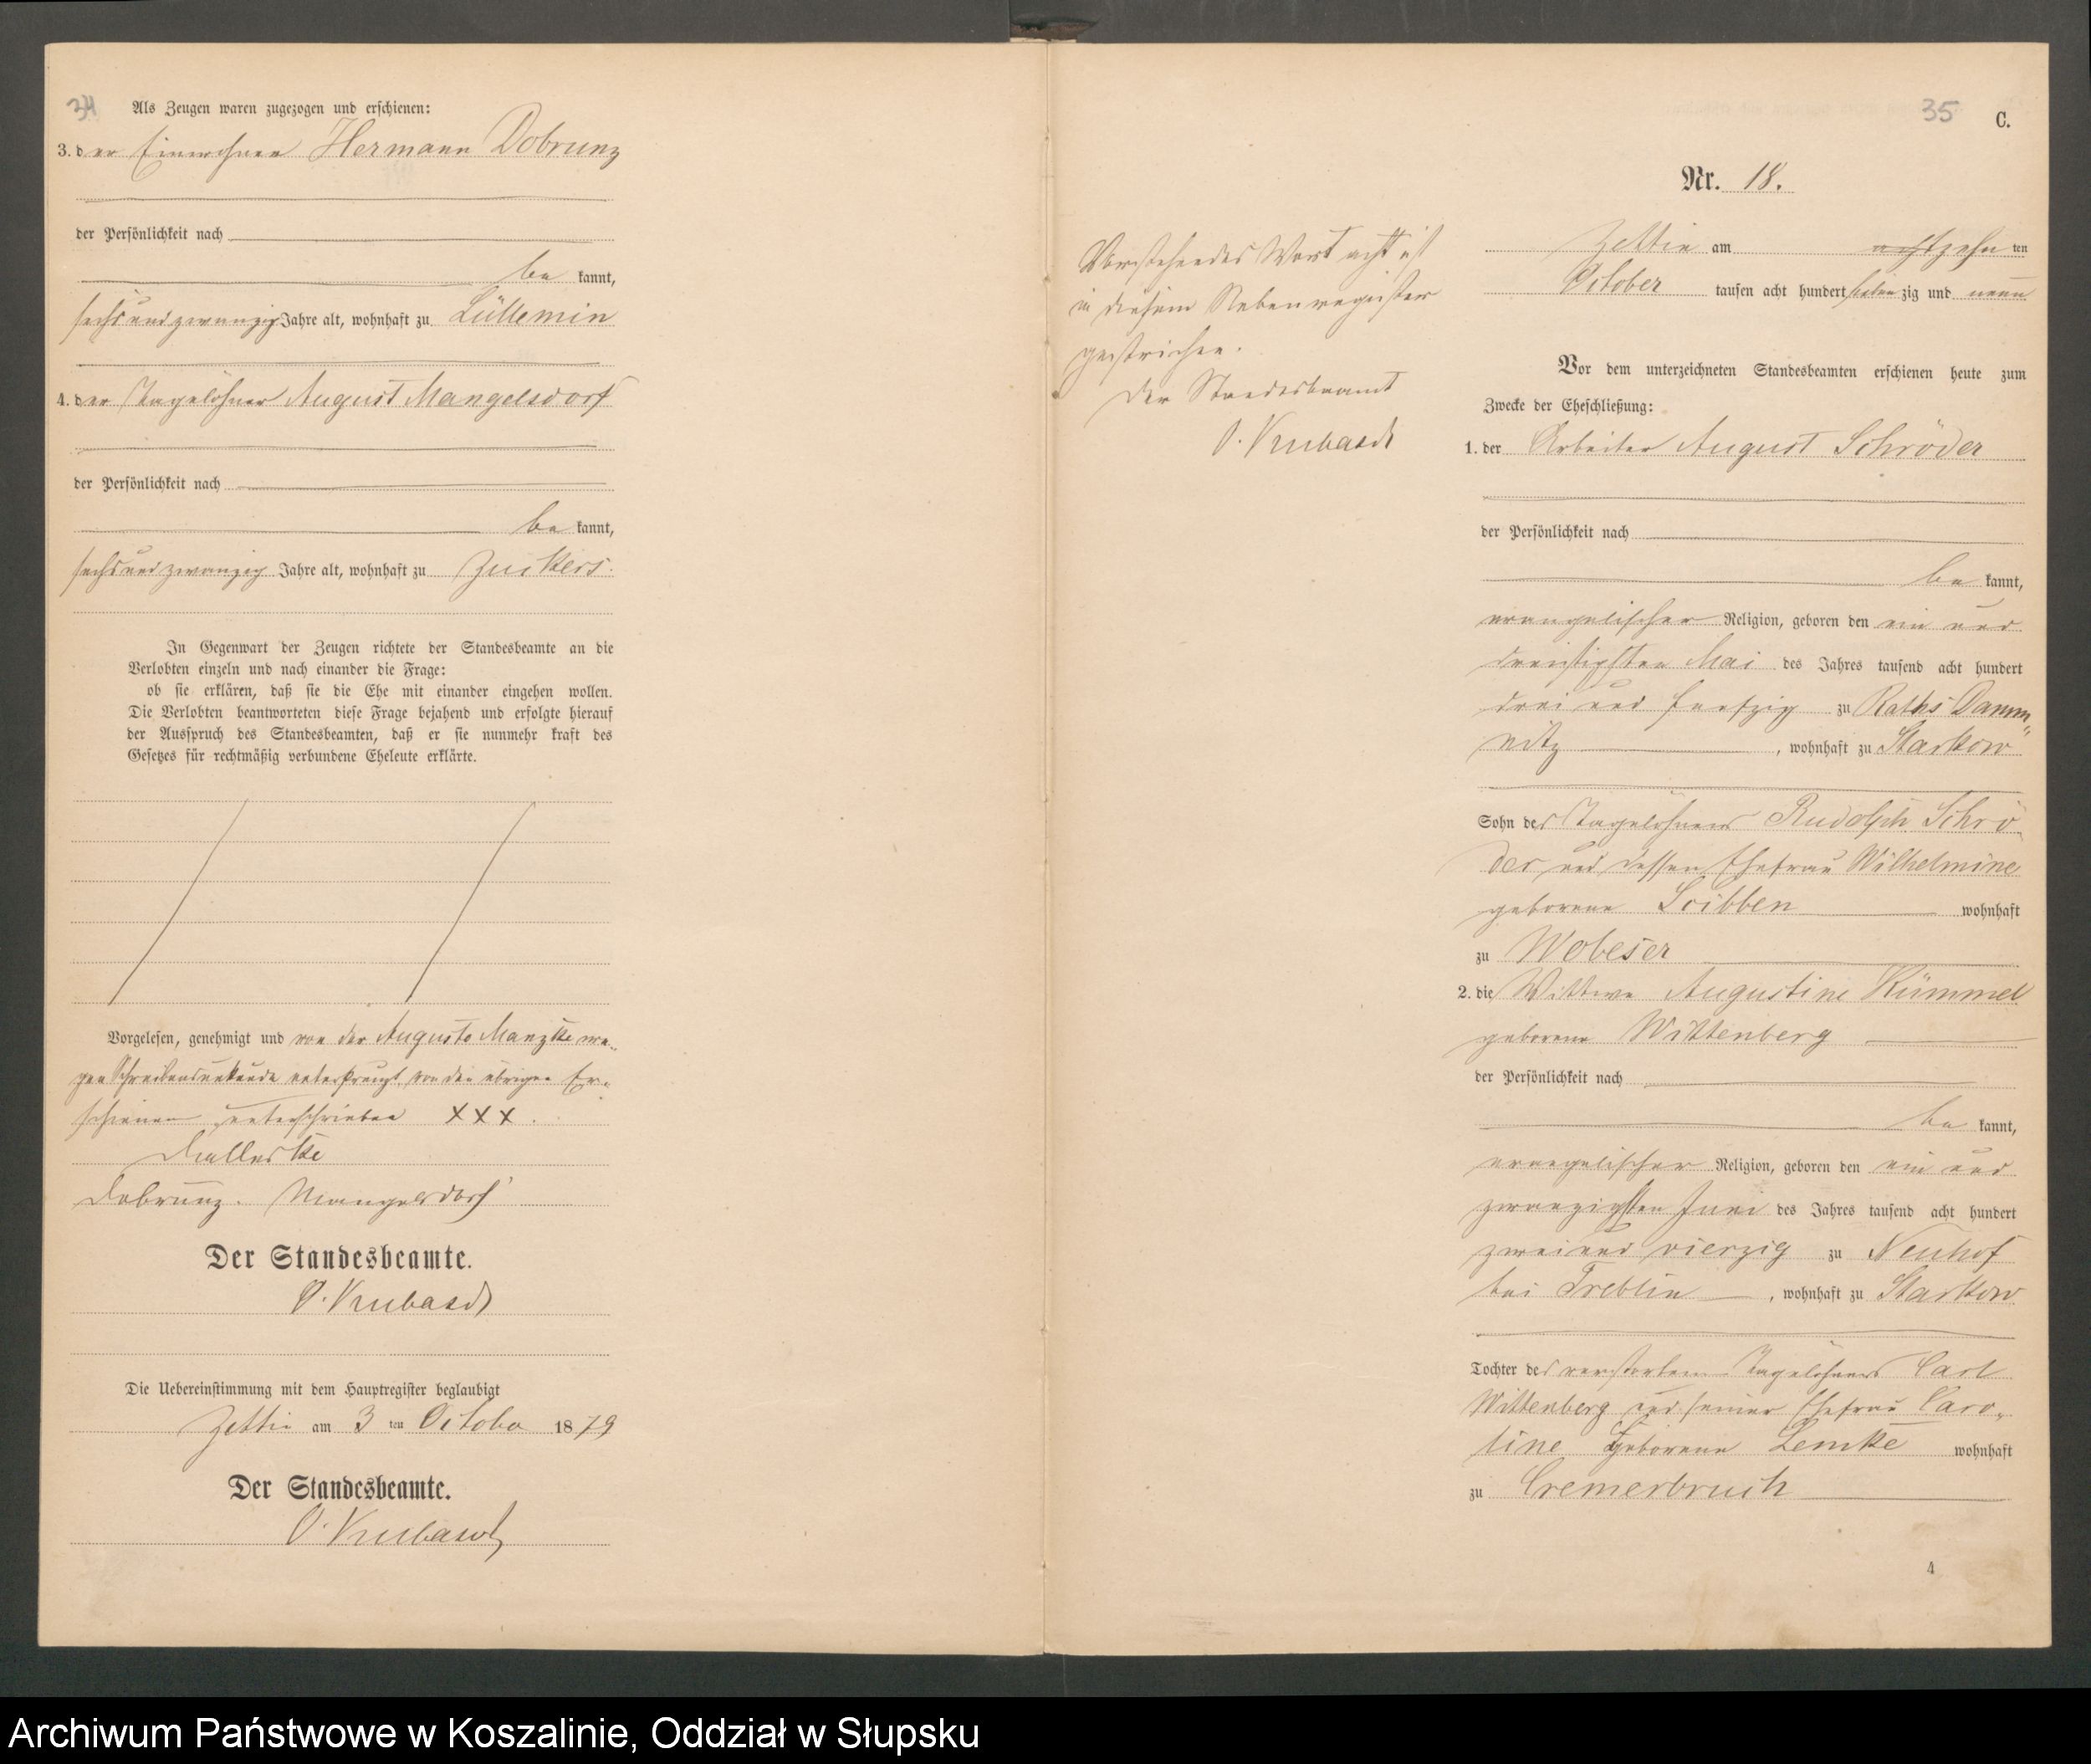 34
Als Zeugen waren zugezogen und erschienen:
3. der Einwohner Hermann Dobrunz
der Persönlichkeit nach
be kannt,
sechs und zwanzig Jahre alt, wohnhaft zu Lüllemin
4. der Tagelöhner August Mangelsdorf
der Persönlichkeit nach
be kannt,
sechs und zwanzig Jahre alt, wohnhaft zu Zuckers.
In Gegenwart der Zeugen richtete der Standesbeamte an die
Verlobten einzeln und nach einander die Frage:
ob sie erklären, daß sie die Ehe mit einander eingehen wollen.
Die Verlobten beantworteten diese Frage bejahend und erfolgte hierauf
der Ausspruch des Standesbeamten, daß er sie nunmehr kraft des
Gesetzes für rechtmäßig verbundene Eheleute erklärte.
Vorgelesen, genehmigt und von der Auguste Manzke we-
gen Schreibensunkunde unterkreuzt, von den übrigen Er-
schienen unterschrieben XXX.
Dobrunz. Mangelsdorf
Der Standesbeamte.
Die Uebereinstimmung mit dem Hauptregister beglaubigt
Zettin am 3 ten October 1879
Der Standesbeamte.
35
C.
Nr. 18.
Vorstehendes Wort acht ist
in diesem Nebenregister
gestrichen.
Der Standesbeamte
Zettin am achtzehn ten
October tausen acht hundert sieben zig und neun
Vor dem unterzeichneten Standesbeamten erschienen heute zum
Zwecke der Eheschließung:
1. der Arbeiter August Schröder
der Persönlichkeit nach
be kannt,
evangelischer Religion, geboren den ein und
dreißigsten Mai des Jahres tausend acht hundert
drei und funfzig zu Raths Damm
nitz, wohnhaft zu Starkow
Sohn des Tagelöhners Rudolph Schrö-
der und dessen Ehefrau Wilhelmine
geborene Scibben wohnhaft
zu Wobeser
2. die Wittwe Augustine Kümmel
geborene Wittenberg
der Persönlichkeit nach
be kannt,
evangelischer Religion, geboren den ein und
zwanzigsten Juni des Jahres tausend acht hundert
zwei und vierzig zu Neuhof
bei Treblin, wohnhaft zu Starkow
Tochter des verstorbenen Tagelöhners Carl
Wittenberg und seiner Ehefrau Caro-
line geborene Lemke wohnhaft
zu Cremerbruch
4
Archiwum Państwowe w Koszalinie, Oddział w Słupsku